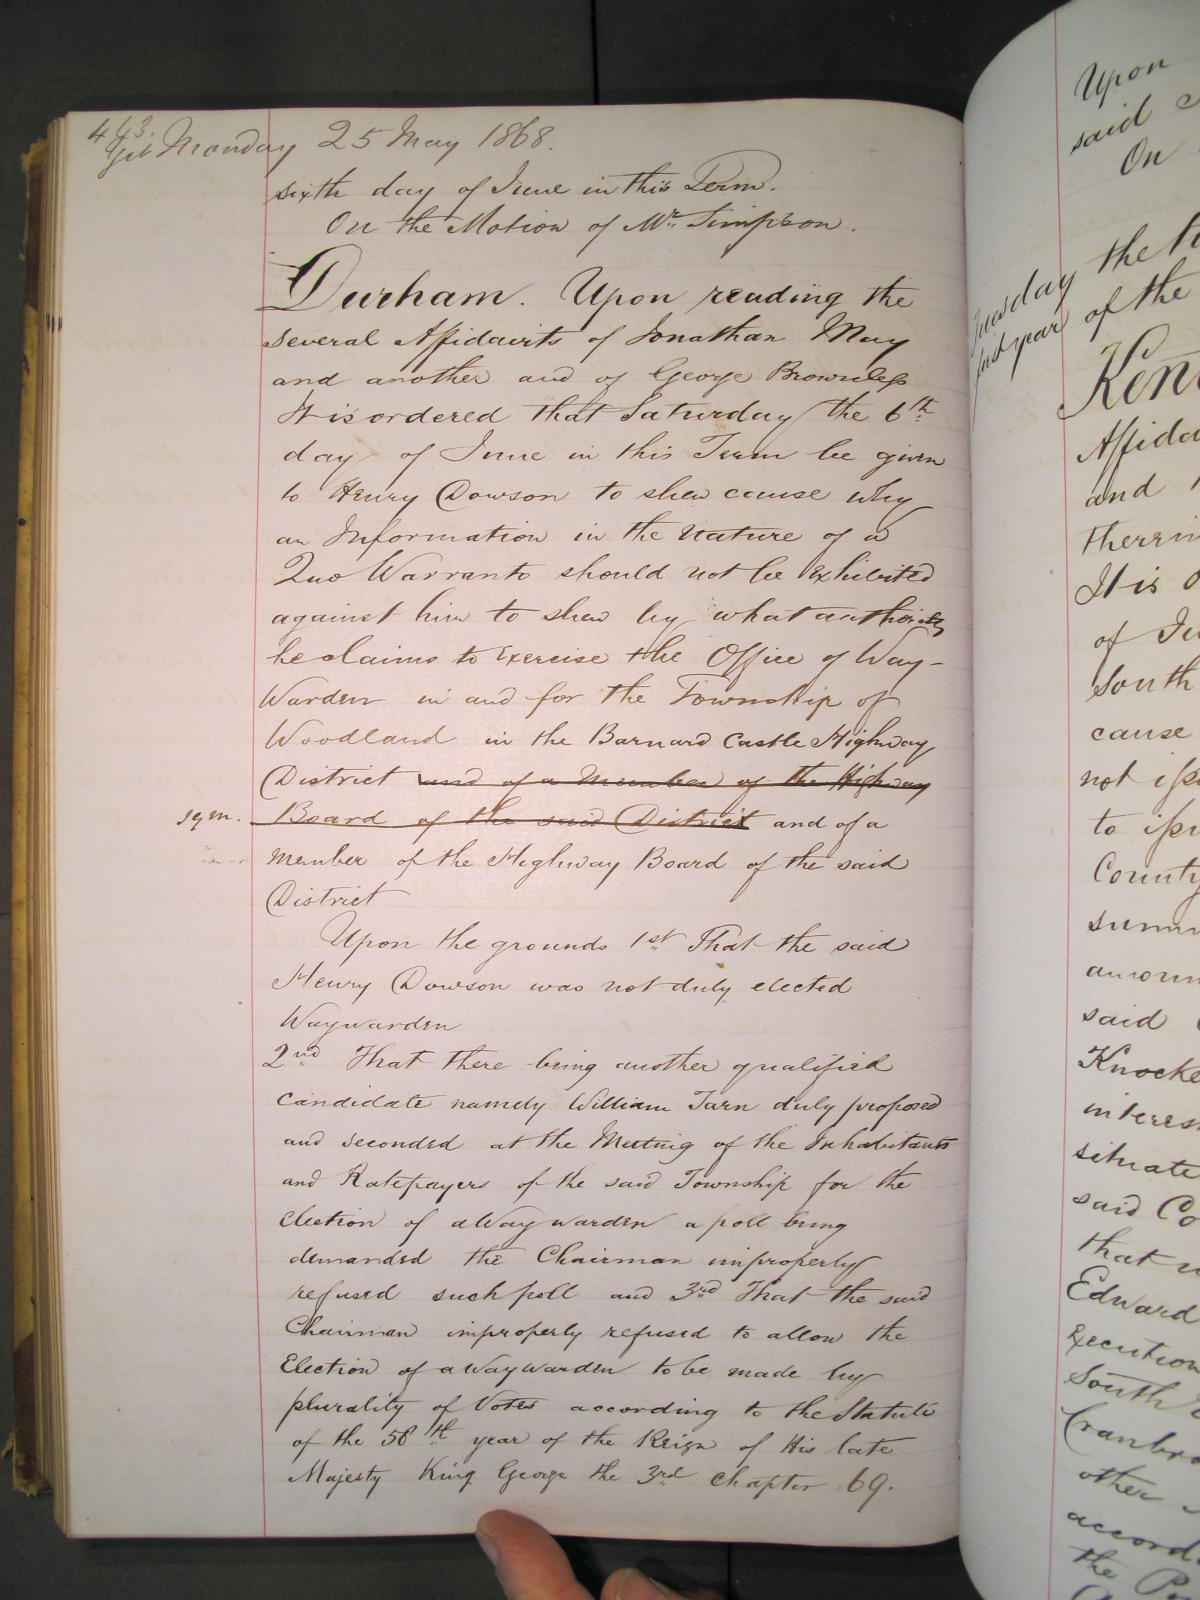 443.
Yet Monday 25 May 1868.
sixth day of June in this Term.
On the Motion of Mr. Simpson.
Durham. Upon reading the
several Affidavits of Jonathan May
and another and of George Brownless
It is ordered that Saturday the 6th
day of June in this Term be given
to Henry Dowson to shew cause why
an Information in the nature of a
Quo Warranto should not be Exhibited
against him to shew by what authority
he claims to Exercise the Office of Way-
Warden in and for the Township of
Woodland in the Barnard Castle Highway
District and of a Member of the Highway
Board of the said District and of a
member of the Highway Board of the said
District
Upon the grounds 1st That the said
Henry Dowson was not duly elected
Waywarden
2nd That there being another qualified
candidate namely William Tarn duly proposed
and seconded at the Meeting of the Inhabitants
and Ratepayers of the said Township for the
Election of a Way warden a poll being
demanded the Chairman improperly
refused such poll and 3rd That the said
Chairman improperly refused to allow the
Election of a Way Warden to be made by
plurality of Votes according to the Statute
of the 58th year of the Reign of His late
Majesty King George the 3rd chapter 69.
Upon
said
On
Tuesday the
first year of the
Kent
Affida
and
It is
of Ju
South
cause
not iss
to issu
County
summ
amoun
said
Knocke
interes
situate
said Co
that
Edward
Execution
South
Cranbro
other
accord
the Po